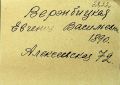 Вержбицкая
Евгения Васильевна
1890.
Алексеевская 72.